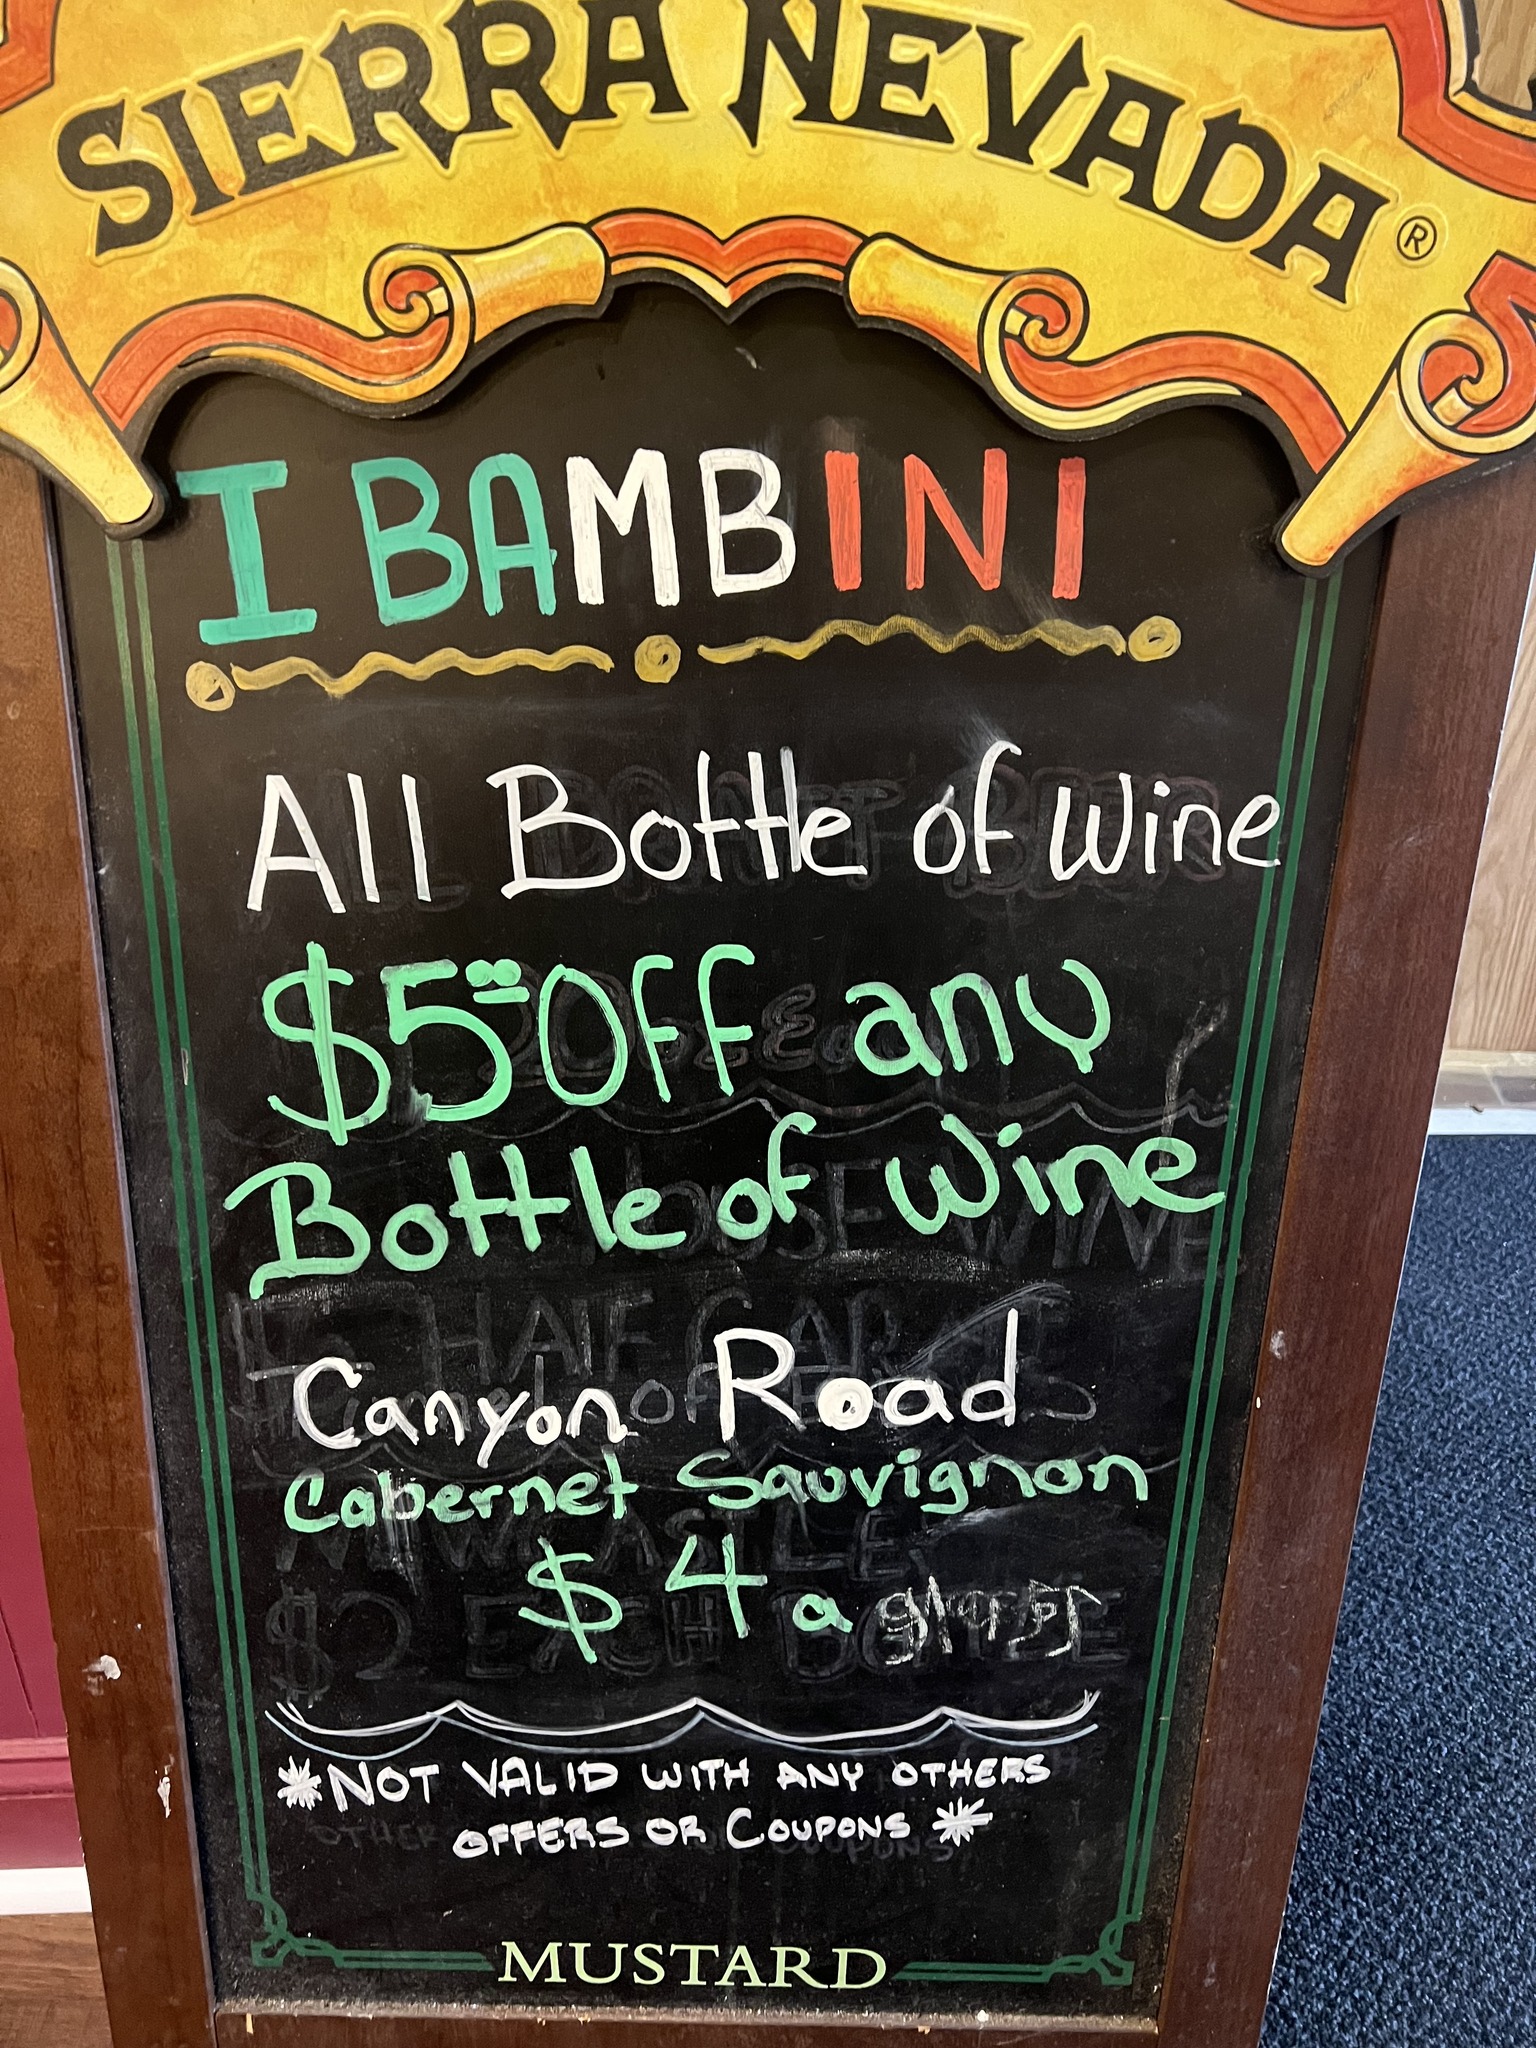 SIERRA NEVADA®
I BAMBINI
All Bottle of Wine
$5.00 Off any
Bottle of Wine
Canyon Road
Cabernet Sauvignon
$4 a glass
*NOT VALID WITH ANY OTHERS
OFFERS OR COUPONS*
MUSTARD